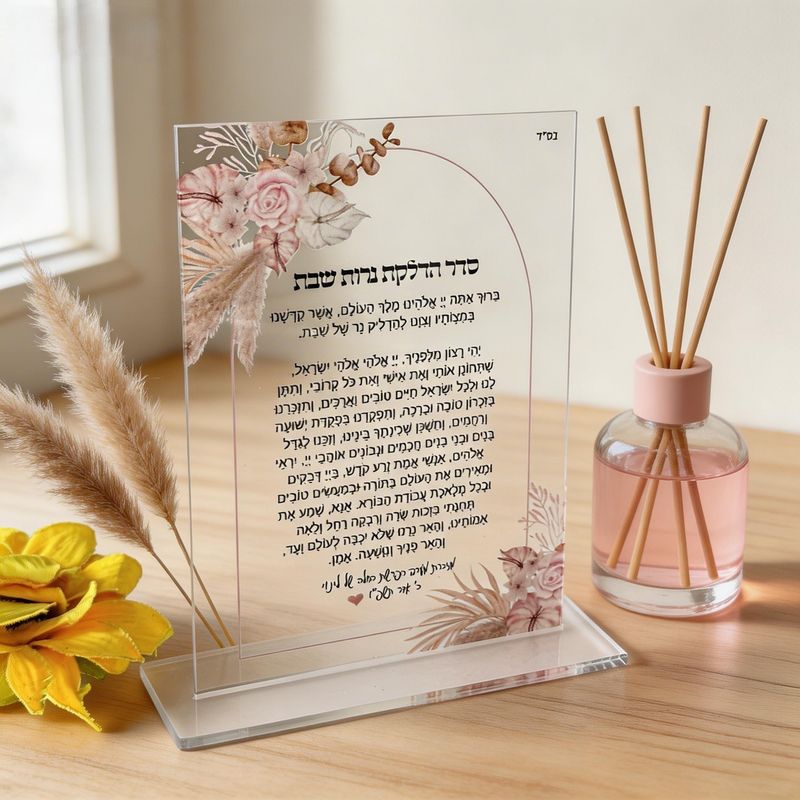 בס"ד
סדר הדלקת נרות שבת
בָּרוּךְ אַתָּה יְיָ אֱלֹהֵינוּ מֶלֶךְ הָעוֹלָם, אֲשֶׁר קִדְּשָׁנוּ
בְּמִצְוֹתָיו וְצִוָּנוּ לְהַדְלִיק נֵר שֶׁל שַׁבָּת.
יְהִי רָצוֹן מִלְּפָנֶיךָ, יְיָ אֱלֹהַי אֱלֹהֵי יִשְׂרָאֵל,
שֶׁתְּחוֹנֵן אוֹתִי וְאֶת אִישִׁי וְאֶת כֹּל קְרוֹבַי, וְתִתֵּן
לָנוּ וּלְכָל יִשְׂרָאֵל חַיִּים טוֹבִים וַאֲרֻכִּים, וְתִזְכְּרֵנוּ
בְּזִכְרוֹן טוֹבָה וּבְרָכָה, וְתִפְקְדֵנוּ בִּפְקֻדַּת יְשׁוּעָה
וְרַחֲמִים, וְתַשְׁכֵּן שְׁכִינָתְךָ בֵּינֵינוּ, וְזַכֵּנוּ לְגַדֵּל
בָּנִים וּבְנֵי בָנִים חֲכָמִים וּנְבוֹנִים אוֹהֲבֵי יְיָ, יִרְאֵי
אֱלֹהִים, אַנְשֵׁי אֱמֶת זֶרַע קֹדֶשׁ, בַּייָ דְּבֵקִים
וּמְאִירִים אֶת הָעוֹלָם בַּתּוֹרָה וּבְמַעֲשִׂים טוֹבִים
וּבְכָל מְלֶאכֶת עֲבוֹדַת הַבּוֹרֵא. אָנָּא, שְׁמַע אֶת
תְּחִנָּתִי בִּזְכוּת שָׂרָה וְרִבְקָה רָחֵל וְלֵאָה
אִמּוֹתֵינוּ, וְהָאֵר נֵרֵנוּ שֶׁלֹּא יִכְבֶּה לְעוֹלָם וָעֶד,
וְהָאֵר פָּנֶיךָ וְנִוָּשֵׁעָה. אָמֵן.
מזכרת מערב הפרשת חלה של לינוי
כ' אדר תשפ"ו